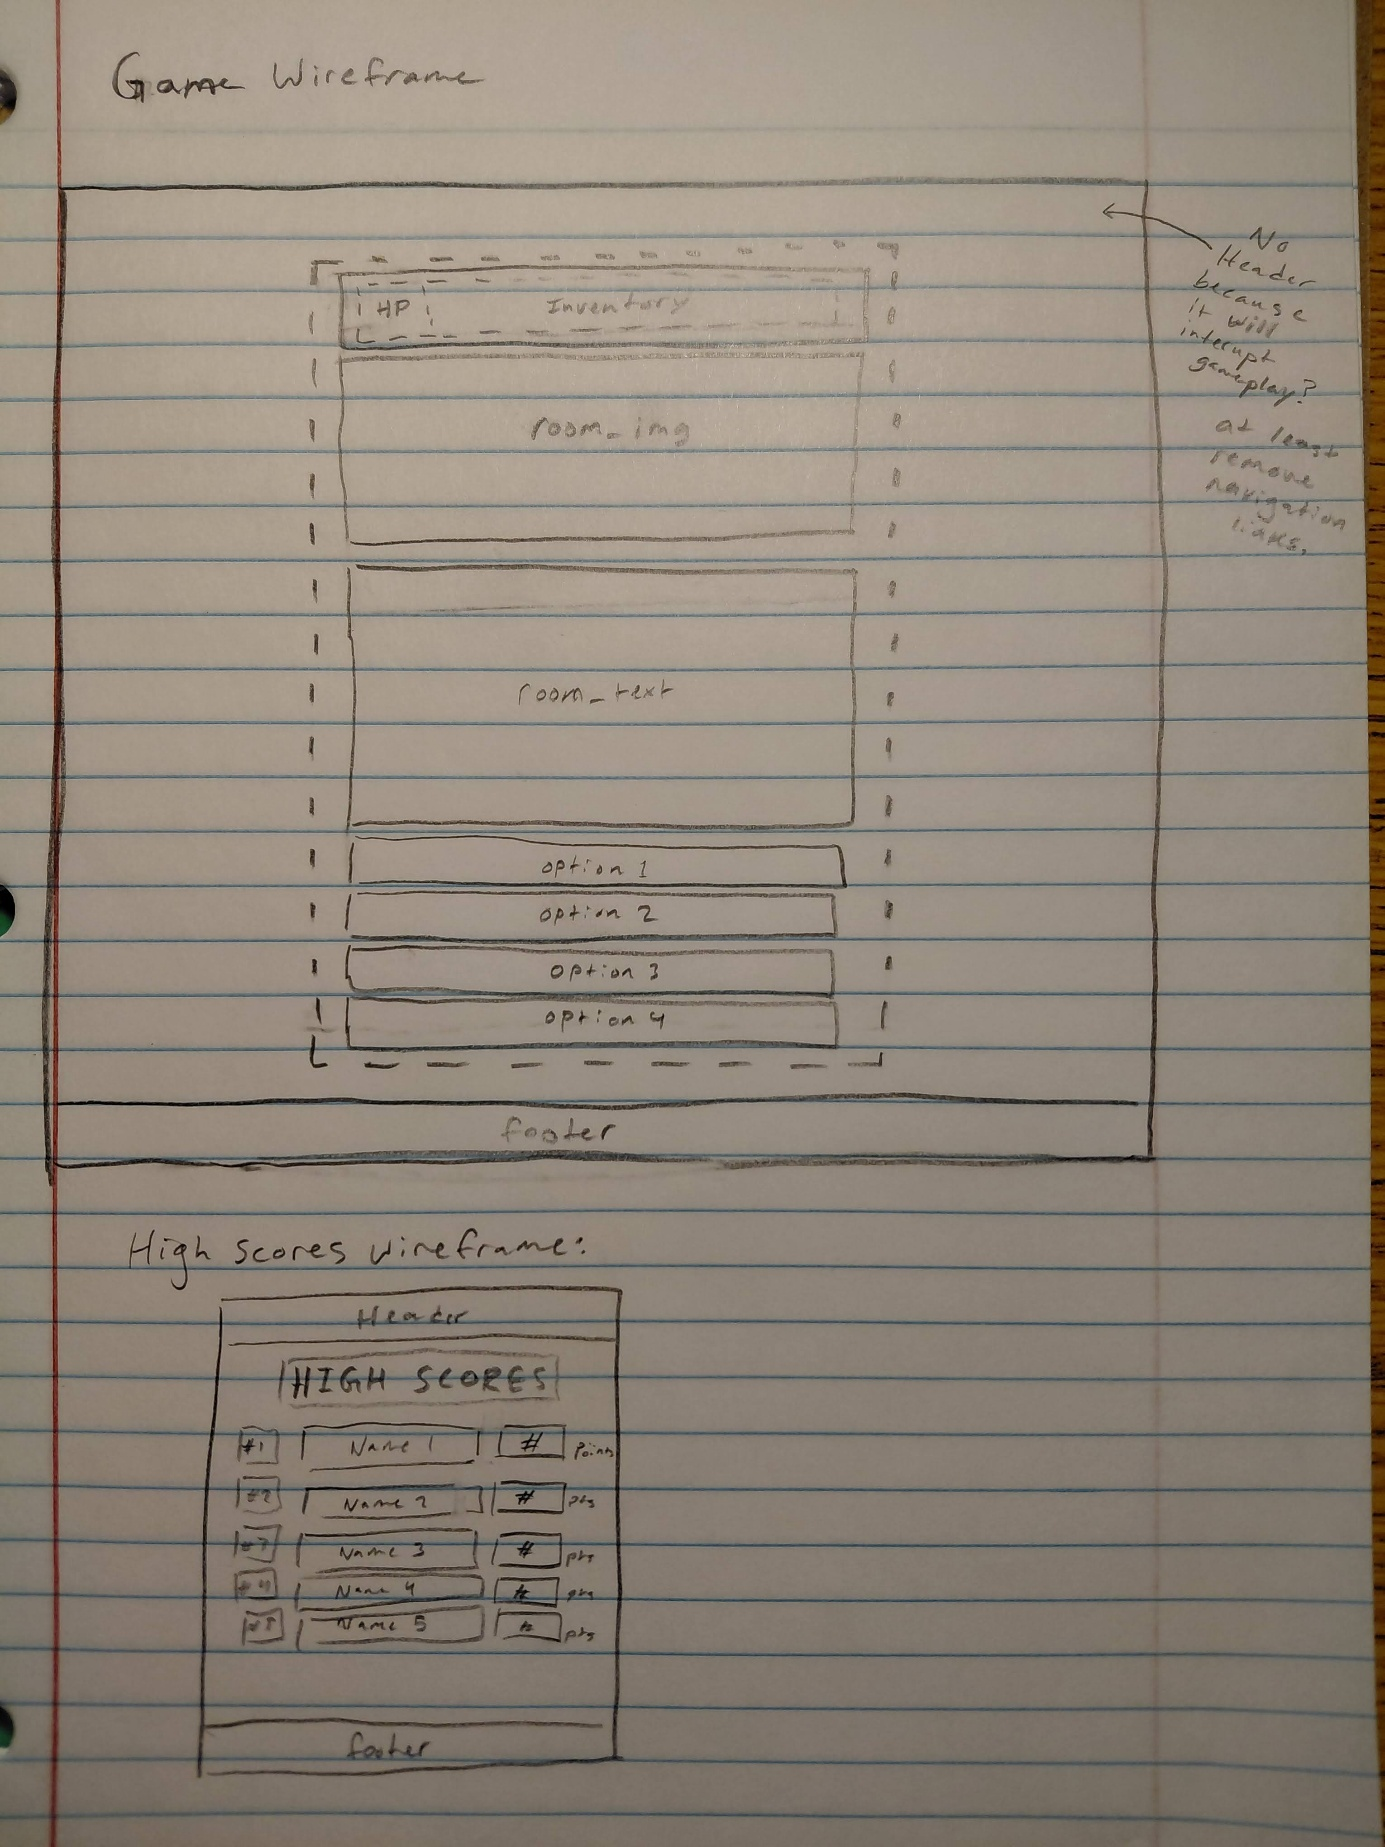 Game Wireframe
No
Header
because
it will
interupt
gameplay?
at least
remove
navigation
links.
HP Inventory
room_img
room_text
option 1
option 2
option 3
option 4
footer
High scores wireframe:
Header
HIGH SCORES
#1 Name 1 # points
#2 Name 2 # pts
#3 Name 3 # pts
#4 Name 4 # pts
#5 Name 5 # pts
footer